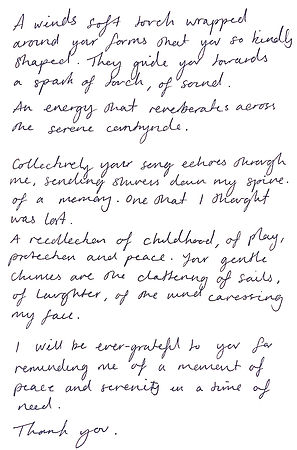 A winds soft torch wrapped
around your forms that you so kindly
shaped. They guide you towards
a spark of torch, of sound.
An energy that reverberates across
the serene countryside.
Collectively your song echoes through
me, sending shivers down my spine.
of a memory. One that I thought
was lost.
A recollection of childhood, of play,
protection and peace. Your gentle
chimes are the clattering of sails,
of laughter, of the wind caressing
my face.
I will be ever-grateful to you for
reminding me of a moment of
peace and serenity in a time of
need.
Thank you.